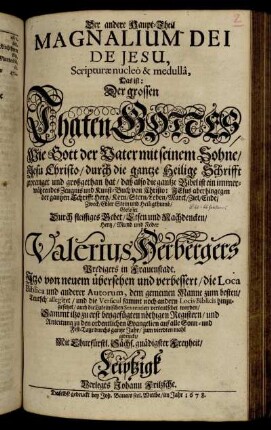 Der andere Haupt-Theil
MAGNALIUM DEI
DE JESU,
Scripturæ nucleô & medullâ,
Das ist:
Der grossen
Thaten GOTTES
Wie Gott der Vater mit seinem Sohne/
Jesu Christo/ durch die gantze Heilige Schrifft
pranget und großgethan hat/ daß also die gantze Bibel ist ein immer-
währendes Zeugnis und Kunst-Buch von Christo/ JEsus aber hingegen
der gantzen Schrifft Hertz/ Kern/ Stern/ Leben/ Marck/ Ziel/ Ende/
Durch fleissiges Gebet/ Lesen und Nachdencken/
Hertz/ Mund und Feder
Valerius Herbergers
Predigers in Frauenstadt.
Itzo von neuem übersehen und verbessert/ die Loca
Biblica und anderer Autorum, dem gemeinen Manne zum besten/
Teutsch allegiret/ und die Versicul sammt noch andern Locis Biblicis hinzu-
Sammt itzo zu erst beygefügten nöthigen Registern/ und
Anleitung zu den ordentlichen Evangelien auf alle Sonn- und
Fest-Tage durchs gantze Jahr/
Mit Churfürstl. Sächs. gnädigster Freyheit/
Leipzigk
Verlegts Johann Fritzsche.
Daselbst gedruckt bey Joh. Bauers sel. Wittbe/ im Jahr 1678.